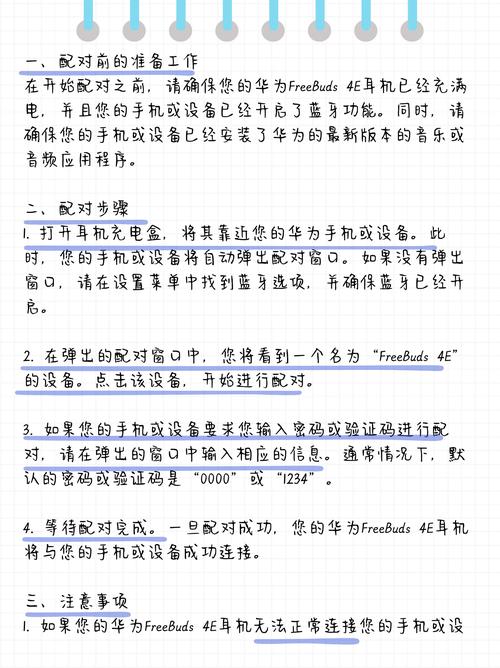 一、配对前的准备工作
在开始配对之前，请确保您的华为FreeBuds 4E耳机已经充满
电，并且您的手机或设备已经开启了蓝牙功能。同时，请
确保您的手机或设备已经安装了华为的最新版本的音乐或
音频应用程序。
二、配对步骤
1. 打开耳机充电盒，将其靠近您的华为手机或设备。此
时，您的手机或设备将自动弹出配对窗口。如果没有弹出
窗口，请在设置菜单中找到蓝牙选项，并确保蓝牙已经开
启。
2. 在弹出的配对窗口中，您将看到一个名为“FreeBuds 4E”
的设备。点击该设备，开始进行配对。
3. 如果您的手机或设备要求您输入密码或验证码进行配
对，请在弹出的窗口中输入相应的信息。通常情况下，默
认的密码或验证码是“0000”或“1234”。
4. 等待配对完成。一旦配对成功，您的华为FreeBuds 4E耳机
将与您的手机或设备成功连接。
三、注意事项
1. 如果您的华为FreeBuds 4E耳机无法正常连接您的手机或设